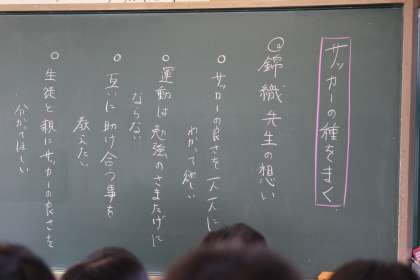 サッカーの種をまく
@錦織先生の想い
○サッカーの良さを一人一人に
わかって欲しい
○運動は勉強のさまたげに
ならない
○互いに助け合う事を
教えたい
○生徒と親にサッカーの良さを
分かってほしい